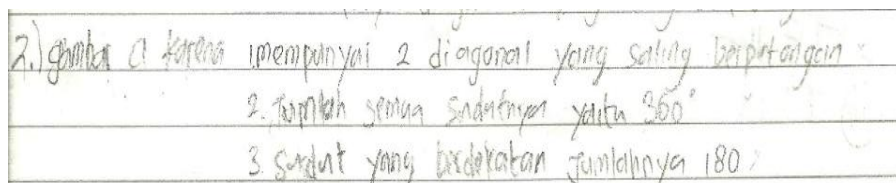 2.) gambar a karena 1. mempunyai 2 diagonal yang saling berpotongan
2. Jumlah semua sudutnya yaitu 360°
3. sudut yang berdekatan jumlahnya 180